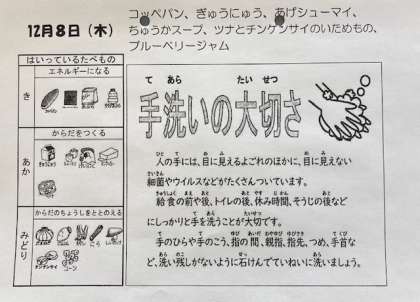 12月8日（木）
コッペパン、ぎゅうにゅう、あげシューマイ、
ちゅうかスープ、ツナとチンゲンサイのいためもの、
ブルーベリージャム
はいっているたべもの
き
エネルギーになる
あか
からだをつくる
みどり
からだのちょうしをととのえる
コーン
手洗いの大切さ
て あら たい せつ
人の手には、目に見えるよごれのほかに、目に見えない
細菌やウイルスなどがたくさんついています。
給食の前や後、トイレの後、休み時間、そうじの後など
にしっかりと手を洗うことが大切です。
手のひらや手のこう、指の間、親指、指先、つめ、手首な
ど、洗い残しがないように石けんでていねいに洗いましょう。